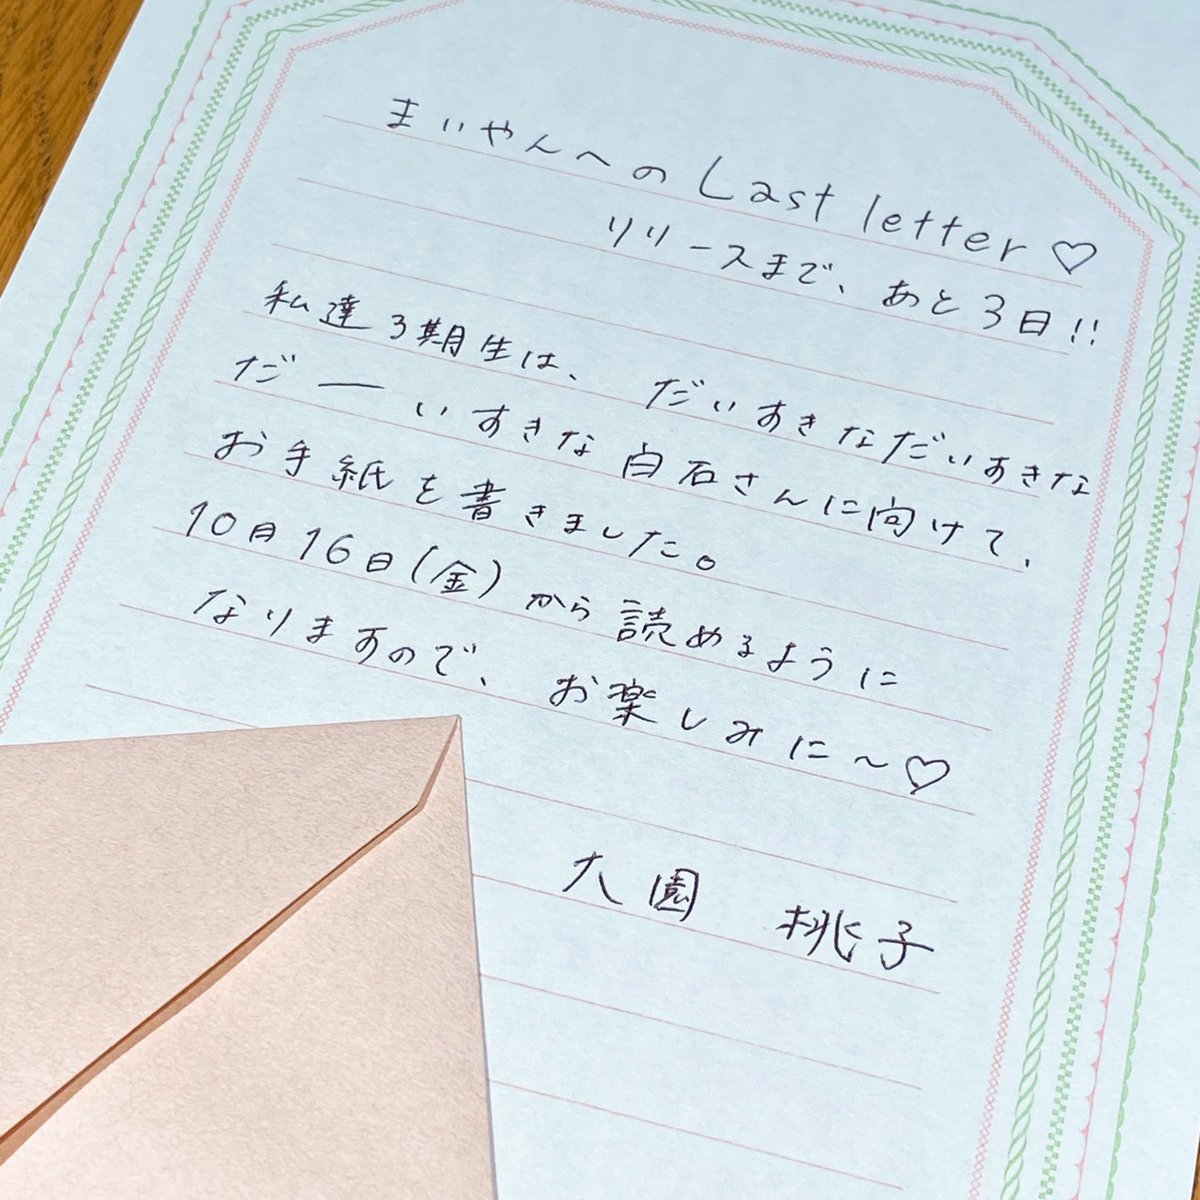 まいやんへのLast letter♡
リリースまで、あと3日!!
私達3期生は、だいすきなだいすきな
だーいすきな白石さんに向けて、
お手紙を書きました。
10月16日(金)から読めるように
なりますので、お楽しみに〜♡
大園 桃子